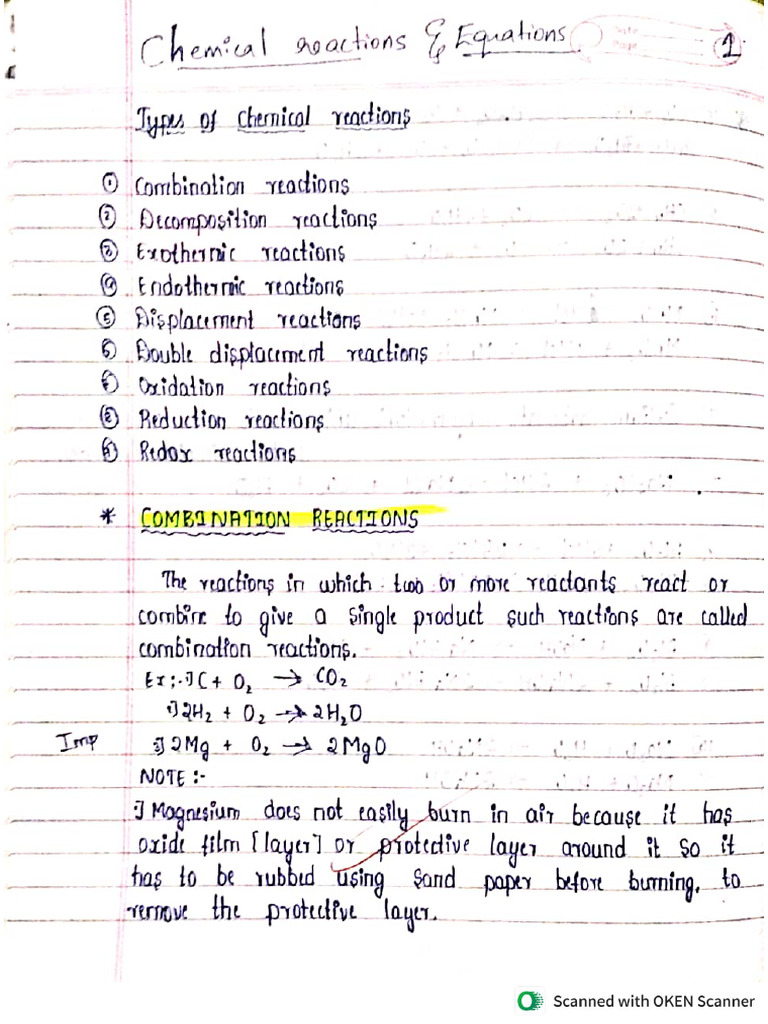 Chemical reactions & Equations
1
Types of chemical reactions
① Combination reactions
② Decomposition reactions
③ Exothermic reactions
④ Endothermic reactions
⑤ Displacement reactions
⑥ Double displacement reactions
⑦ Oxidation reactions
⑧ Reduction reactions
⑨ Redox reactions
* COMBINATION REACTIONS
The reactions in which two or more reactants react or
combine to give a single product such reactions are called
combination reactions.
Ex:-1] C + O₂ → CO₂
2H₂ + O₂ → 2H₂O
Imp 3] 2Mg + O₂ → 2MgO
NOTE :-
1] Magnesium does not easily burn in air because it has
oxide film [layer] or protective layer around it so it
has to be rubbed using sand paper before burning. to
remove the protective layer.
Scanned with OKEN Scanner